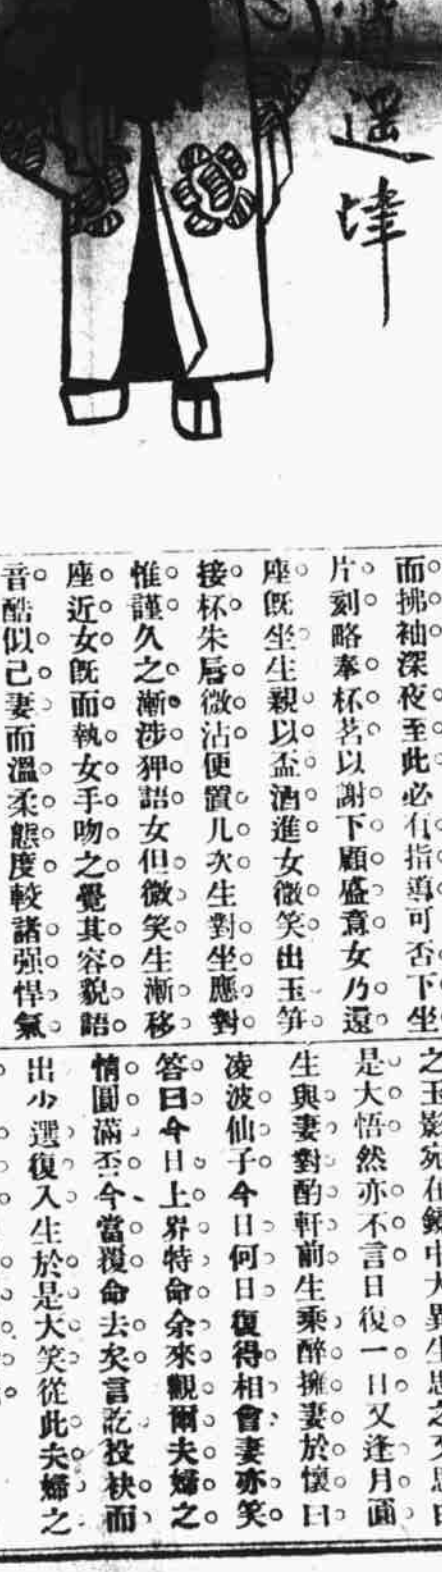 遥
啅
而拂袖深夜至此必有指導可否下坐
片刻略奉杯茗以謝下顧盛意女乃還
座既坐生親以盃酒進女微笑出玉笋
接杯朱唇微沾便置几次生對坐應對
惟謹久之漸涉狎語女但微笑生漸移
座近女既而執女手吻之覺其容貌語
音酷似己妻而溫柔態度較諸强悍氣
之玉影宛在鏡中大異生思之又思由
是大悟然亦不言日復一日又逢月圓
生與妻對酌軒前生乘醉擁妻於懷曰
凌波仙子今日何日復得相會妻亦笑
答曰今日上界特命余來觀爾夫婦之
情圓滿否今當覆命去矣言訖投袂而
出少選復入生於是大笑從此夫婦之